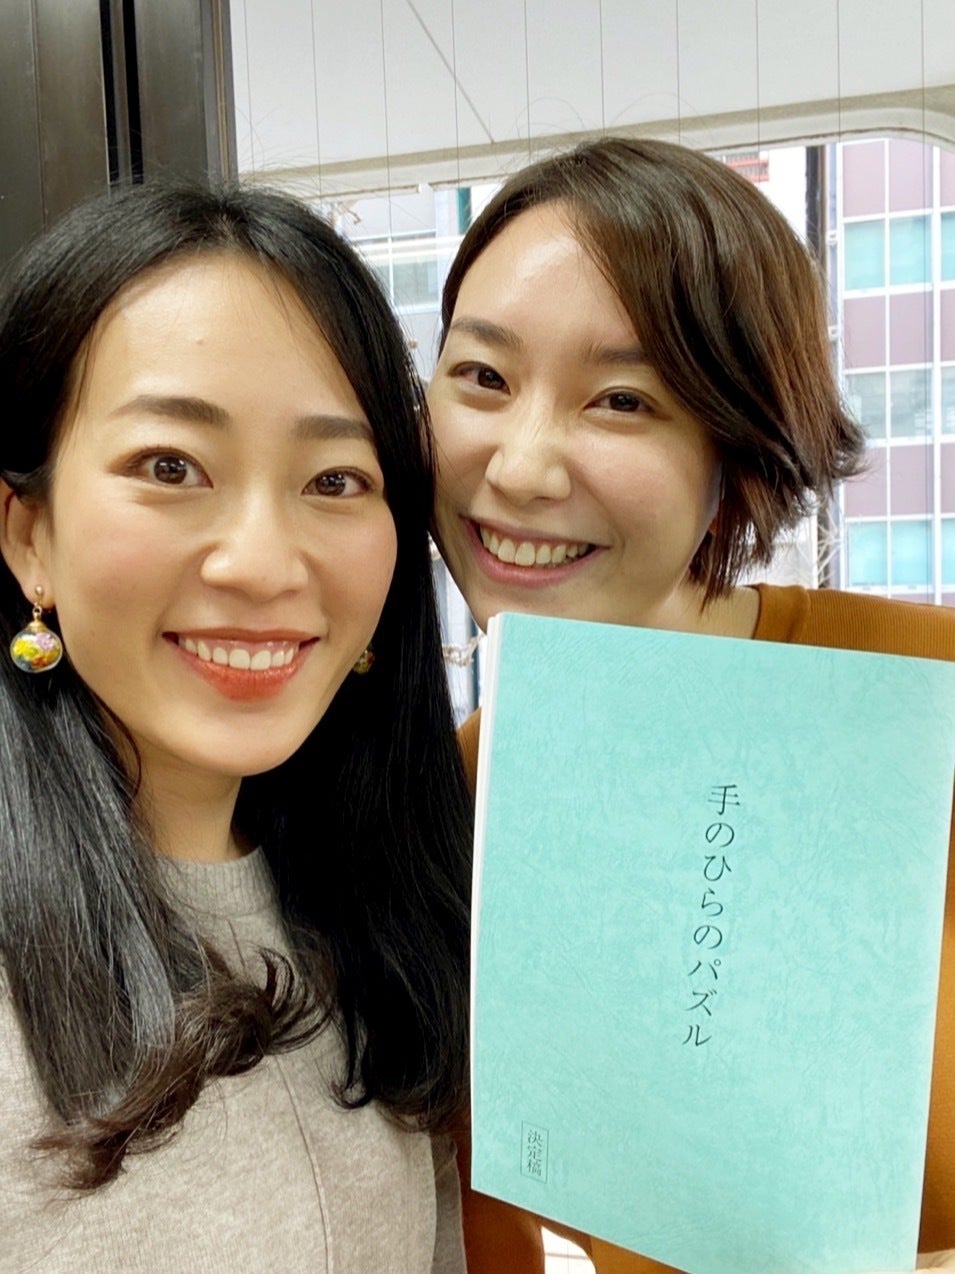 手のひらのパズル
決定稿